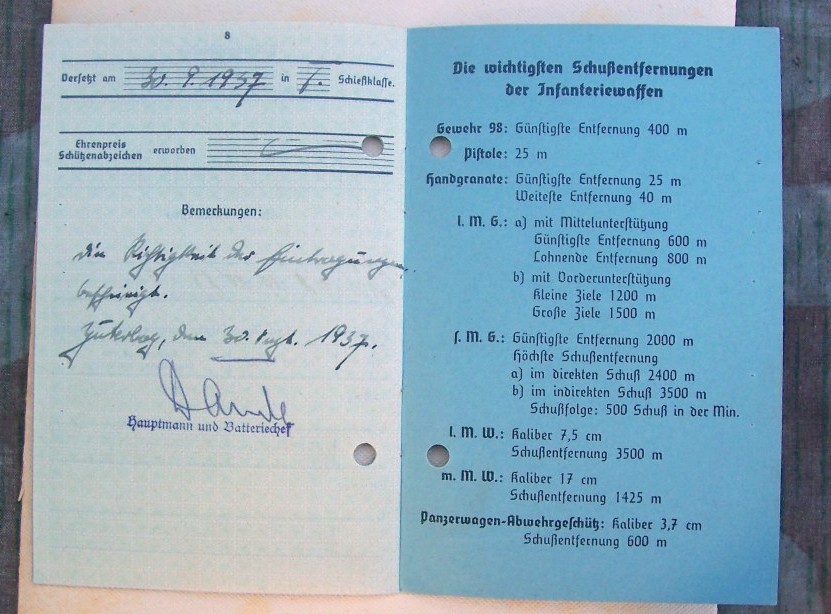 8
Versetzt am 30. 9. 1937 in I. Schießklasse.
Ehrenpreis
Schützenabzeichen erworben
Bemerkungen:
die Richtigkeit der Eintragungen
bescheinigt.
Jüterbog, den 30. Sept. 1937.
Hauptmann und Batteriechef
Die wichtigsten Schußentfernungen
der Infanteriewaffen
Gewehr 98: Günstigste Entfernung 400 m
Pistole: 25 m
Handgranate: Günstigste Entfernung 25 m
Weiteste Entfernung 40 m
l. M. G.: a) mit Mittelunterstützung
Günstigste Entfernung 600 m
Lohnende Entfernung 800 m
b) mit Vorderunterstützung
Kleine Ziele 1200 m
Große Ziele 1500 m
s. M. G.: Günstigste Entfernung 2000 m
Höchste Schußentfernung
a) im direkten Schuß 2400 m
b) im indirekten Schuß 3500 m
Schußfolge: 500 Schuß in der Min.
l. M. W.: Kaliber 7,5 cm
Schußentfernung 3500 m
m. M. W.: Kaliber 17 cm
Schußentfernung 1425 m
Panzerwagen-Abwehrgeschütz: Kaliber 3,7 cm
Schußentfernung 600 m